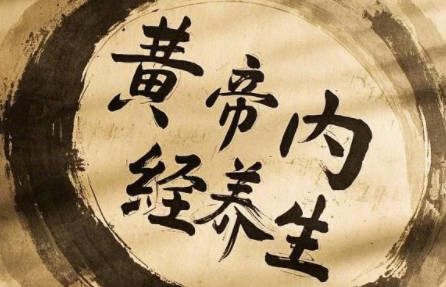 黄帝内
經养生